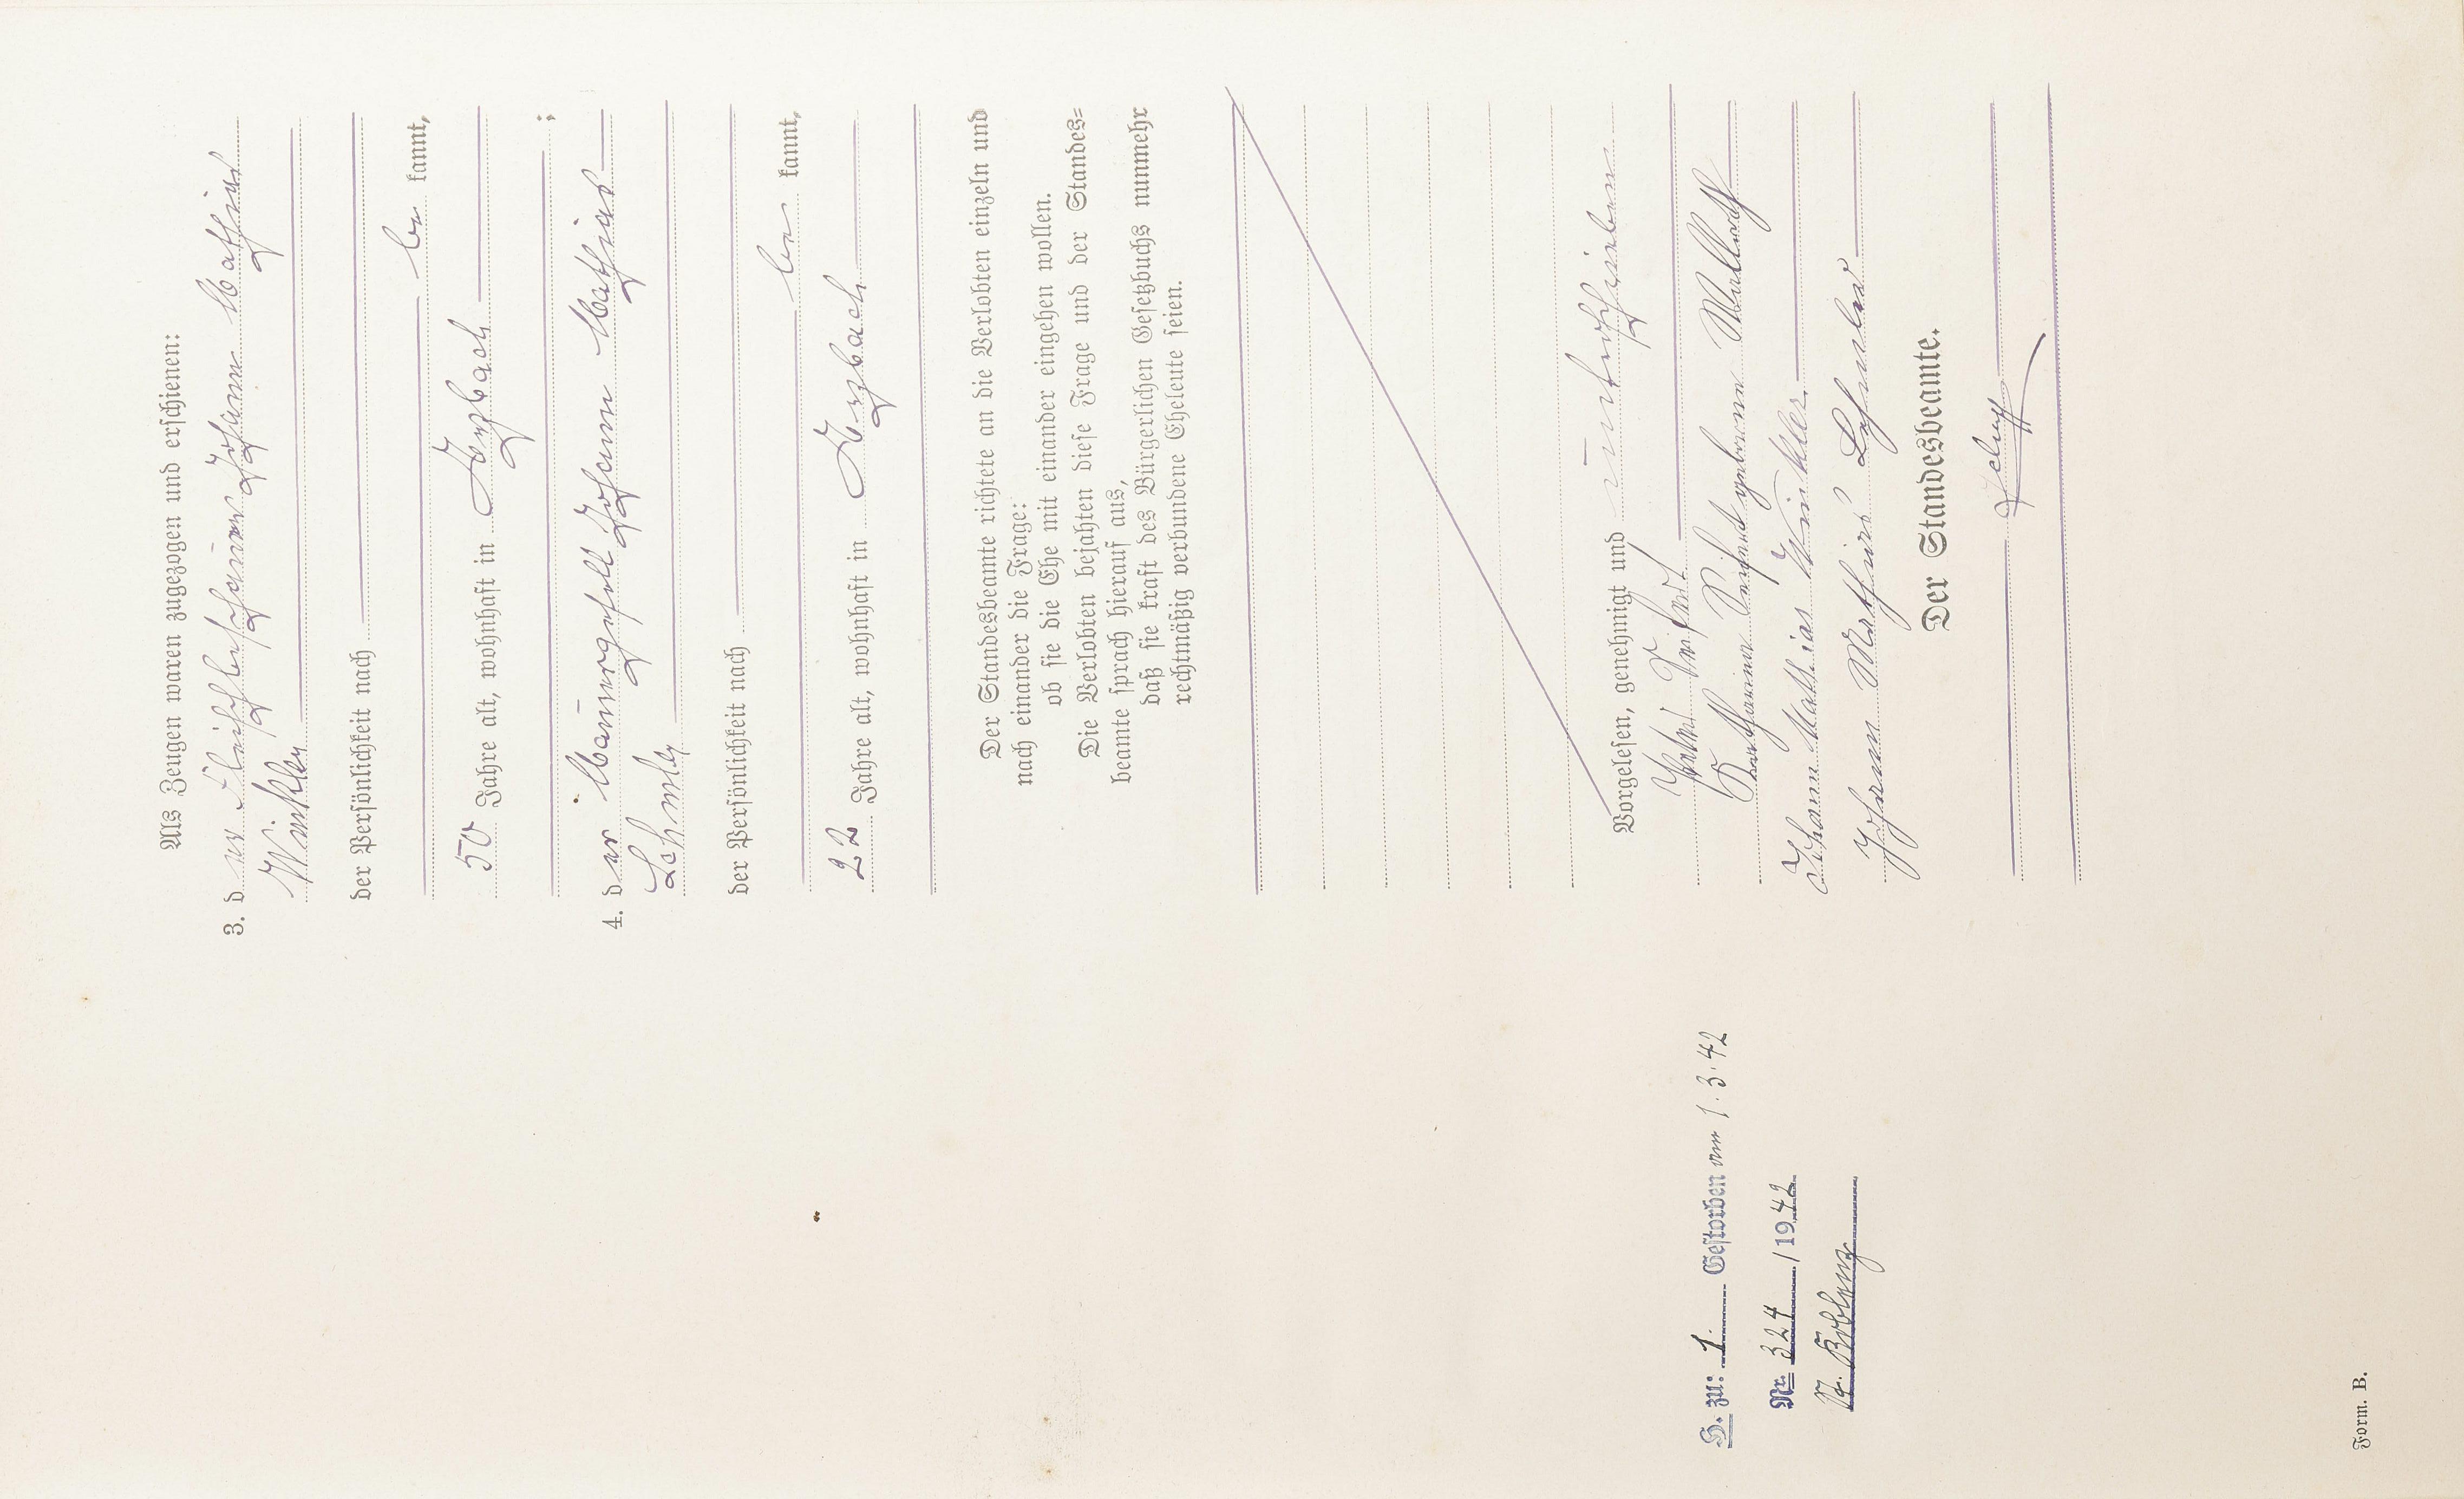 Als Zeugen waren zugezogen und erschienen:
3. der Fleischbeschauer Johann Mathias
Winkler
der Persönlichkeit nach
be kannt,
50 Jahre alt, wohnhaft in
;
4. der Johann Mathias
der Persönlichkeit nach
be kannt,
22 Jahre alt, wohnhaft in
Der Standesbeamte richtete an die Verlobten einzeln und
nach einander die Frage:
ob sie die Ehe mit einander eingehen wollen.
Die Verlobten bejahten diese Frage und der Standes-
beamte sprach hierauf aus,
daß sie kraft des Bürgerlichen Gesetzbuchs nunmehr
rechtmäßig verbundene Eheleute seien.
Vorgelesen, genehmigt und unterschrieben
Peter
Katharina geborene
Johann Mathias Winkler
Johann Mathias
Der Standesbeamte.
H. zu: 1. Gestorben am 1.3.42
Nr. 324 / 1942
St. Koblenz
Form. B.